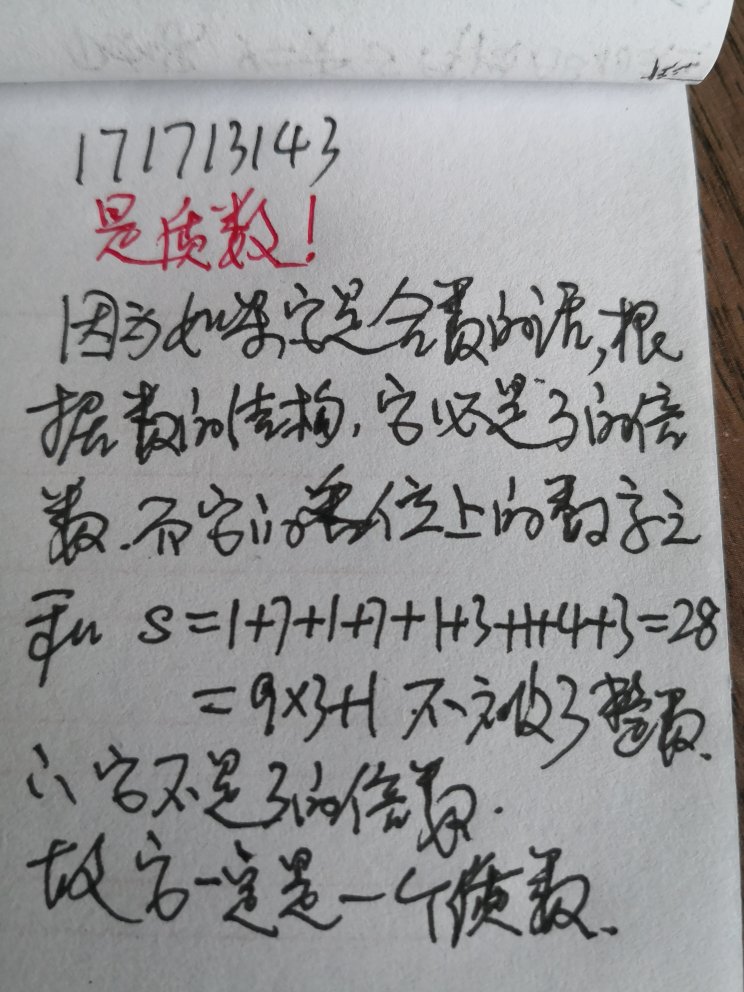 171713143
是质数!
因为如果它是合数的话,根
据数的结构,它必是3的倍
数.而它的各位上的数字之
和 S=1+7+1+7+1+3+1+4+3=28
=9×3+1 不被3整数.
∴它不是3的倍数.
故它一定是一个质数.